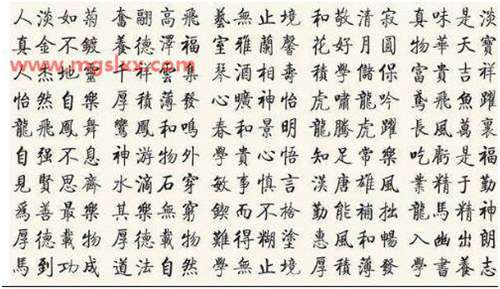 人淡如菊 奮翮高飛 藝無止境 和敬清寂 真味是淡
真金不鍍 養德澤福 室雅蘭馨 花好月圓 物華天寶
www.mgslxx.com
人杰地靈 千祥雲集 琴酒 壽 學 保 富貴吉祥
怡然自樂 厚積薄發 心曠神怡 虎嘯龍吟 鳶飛魚躍
龍飛鳳舞 鸞鳳和鳴 春和景明 龍騰虎躍 長風萬里
自强不息 神游物外 學貴心悟 知足常樂 吃虧是福
見賢思齊 水滴石穿 敏事慎言 漢唐雄風 業精于勤
爲善最樂 其樂無窮 鍥而不捨 勤能補拙 龍馬精神
厚德載物 厚德載物 難得糊塗 惠風和暢 入幽出朗
馬到功成 道法自然 學無止境 厚積薄發 學書養志